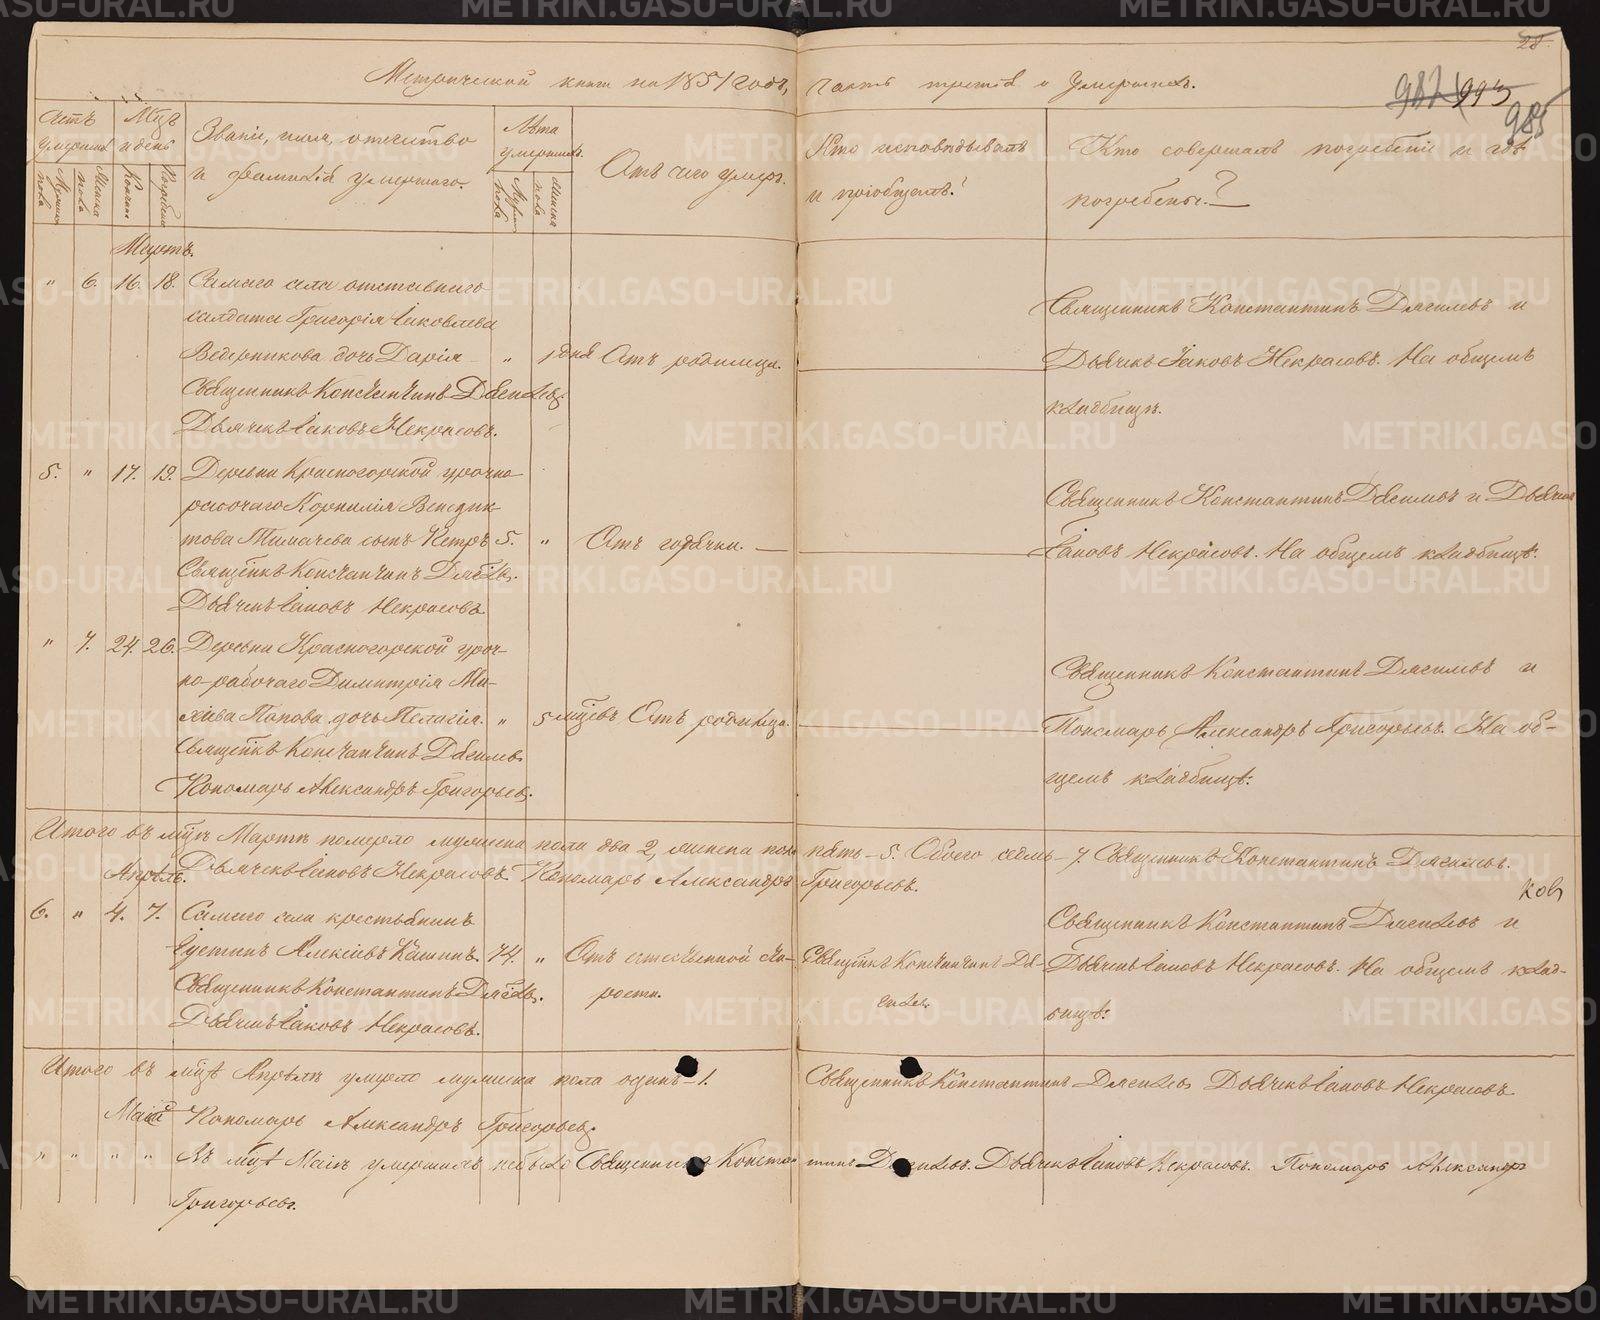 28
Метрической книги на 1851 годъ, часть третія о умершихъ.
987 993
985
Счетъ умершихъ
Мѣсяцъ и день
Званіе, имя, отчество
и фамилія умершаго.
Лѣта умершихъ.
Отъ чего умеръ.
Кто исповѣдывалъ
и пріобщалъ?
Кто совершалъ погребеніе и гдѣ
погребены?
Мужеска пола
Женска пола
Кончины
Погребенія
Мужеска пола
Женска пола
Мартъ.
" 6. 16. 18. Самаго села отставнаго
салдата Григорія Іаковлева
Ведерникова дочь Дарія " 1 дня Отъ родимца.
Священникъ Константинъ
Дьячекъ Іаковъ Некрасовъ.
Священникъ Константинъ и
Дьячекъ Іаковъ Некрасовъ. На общемъ
кладбищѣ.
5. " 17. 19. Деревни Красногорской урочно
рабочаго Корнилія Венедик
това сынъ Петръ 5. " Отъ горячки.
Священникъ Константинъ
Дьячекъ Іаковъ Некрасовъ
Священникъ Константинъ и Дьячекъ
Іаковъ Некрасовъ. На общемъ кладбищѣ.
" 7. 24. 26. Деревни Красногорской уроч-
но-рабочаго Димитрія Ми-
хѣева Попова дочь Пелагія. " 5 мѣсяцевъ Отъ родимца.
Священникъ Константинъ
Пономарь Александръ Григорьевъ.
Священникъ Константинъ и
Пономарь Александръ Григорьевъ. На об-
щемъ кладбищѣ.
Итого въ мѣсяцѣ Мартѣ померло мужеска пола два 2, женска пола пять - 5. Обоего седмь - 7. Священникъ Константинъ
Дьячекъ Іаковъ Некрасовъ. Пономарь Александръ Григорьевъ.
Апрѣль.
6. " 4. 7. Самаго села крестьянинъ
Іустинъ Алексіевъ Кашинъ. 74. " Отъ естественной ста-
рости.
Священникъ Константинъ
Дьячекъ Іаковъ Некрасовъ.
Священникъ Константинъ
Священникъ Константинъ и
Дьячекъ Іаковъ Некрасовъ. На общемъ клад-
бищѣ.
Итого въ мѣсяцѣ Апрѣлѣ умерло мужеска пола одинъ - 1. Священникъ Константинъ Дьячекъ Іаковъ Некрасовъ
Пономарь Александръ Григорьевъ.
Маій
" " " " Въ мѣсяцѣ Маіѣ умершихъ не было Священникъ Константинъ Дьячекъ Іаковъ Некрасовъ. Пономарь Александръ
Григорьевъ.
METRIKI.GASO-URAL.RU